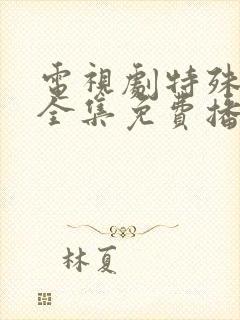 電視劇特殊
全集免費播
林夏